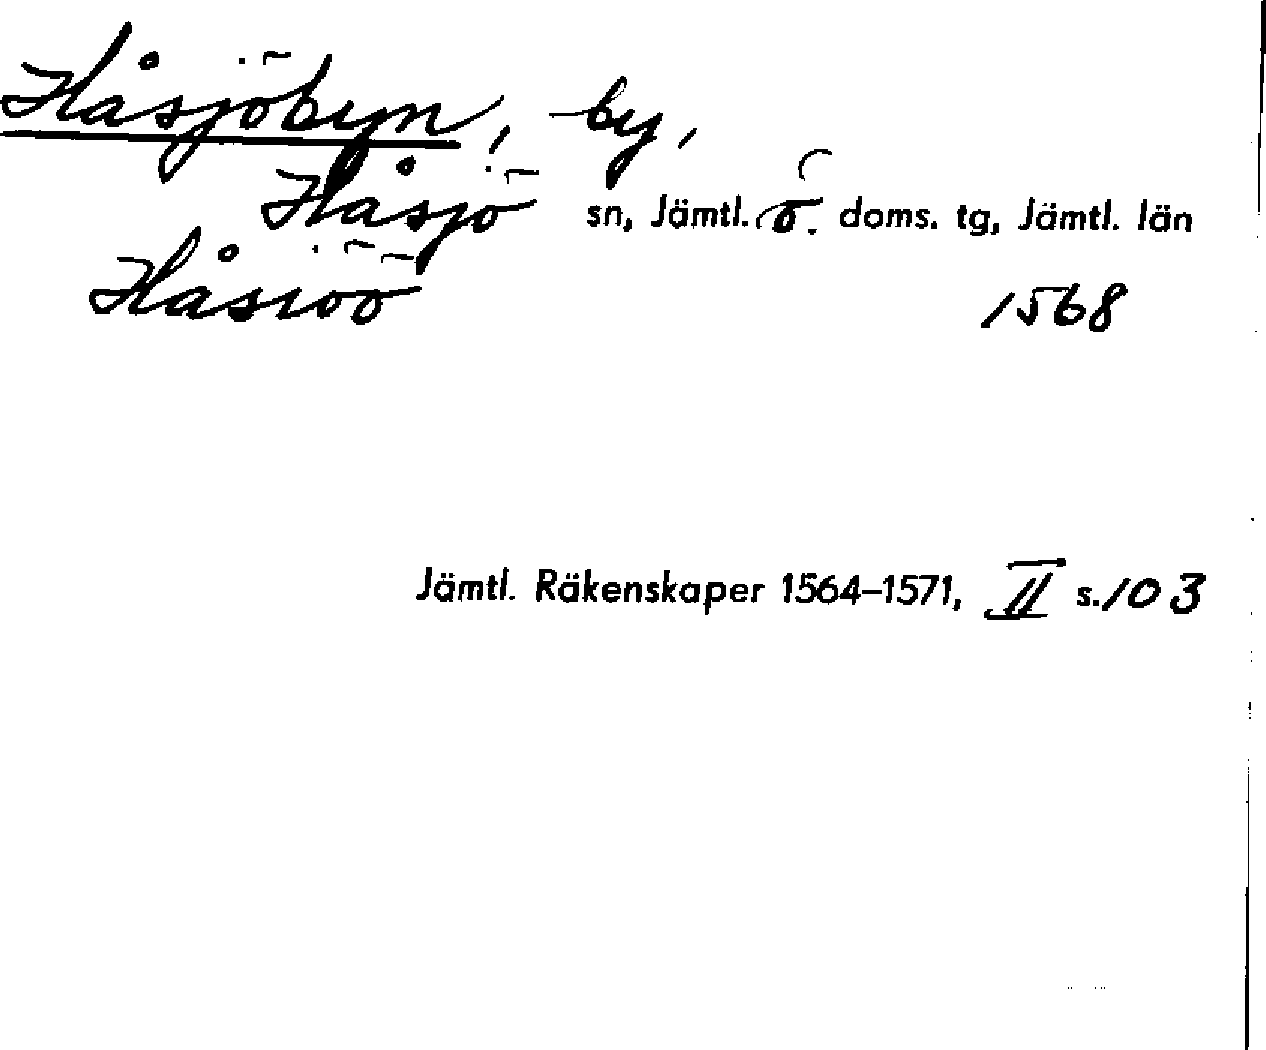 Håsjöbyn, by,
Håsjö sn, Jämtl. ö. doms. tg, Jämtl. län
Håsiöö 1568
Jämtl. Räkenskaper 1564–1571, II s. 103